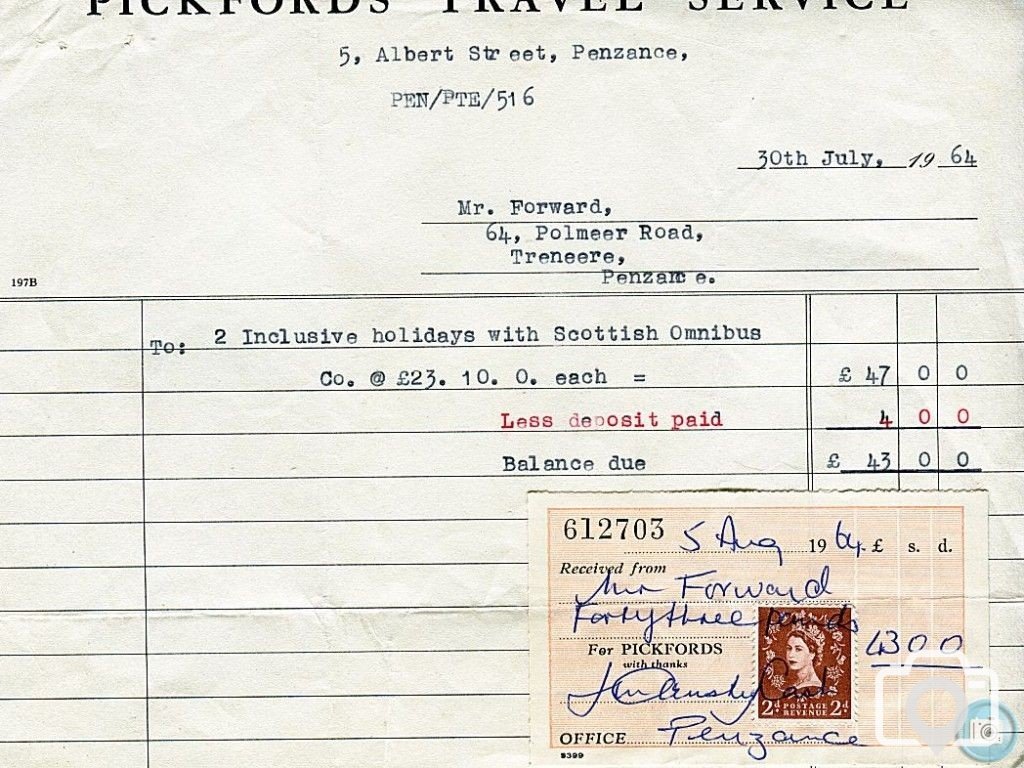 PICKFORDS TRAVEL SERVICE
5, Albert Street, Penzance,
PEN/PTE/516
30th July, 19 64
Mr. Forward,
64, Polmeer Road,
Treneere,
Penzance.
197B
To: 2 Inclusive holidays with Scottish Omnibus
Co. @ £23. 10. 0. each = £ 47 0 0
Less deposit paid 4 0 0
Balance due £ 43 0 0
612703 5 Aug 1964. £ s. d.
Received from
Mr Forward
Forty three pounds
43 0 0
For PICKFORDS
with thanks
2d POSTAGE REVENUE 2d
OFFICE Penzance
S399